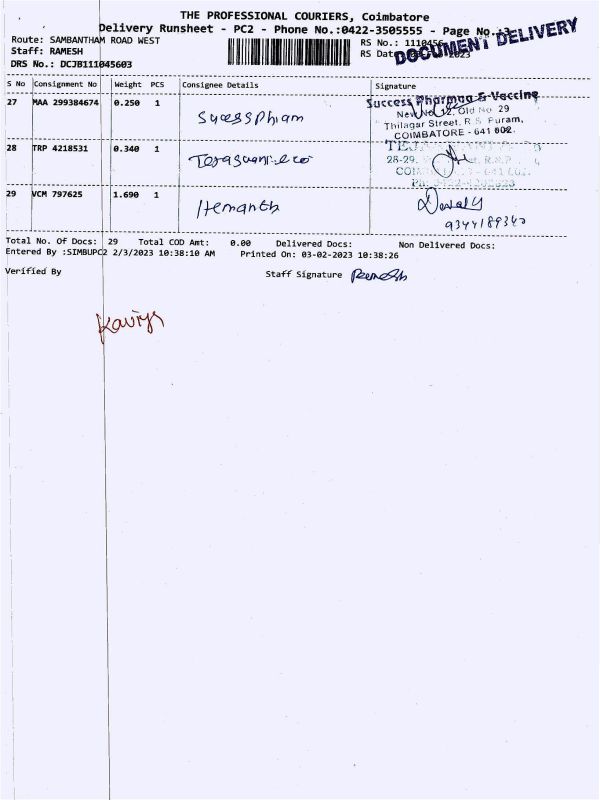 THE PROFESSIONAL COURIERS, Coimbatore
Delivery Runsheet - PC2 - Phone No.:0422-3505555 - Page No.:3
Route: SAMBANTHAM ROAD WEST
RS No.: 1110456
Staff: RAMESH
RS Dat 2023
DOCUMENT DELIVERY
DRS No.: DCJB111045603
S No Consignment No Weight PCS Consignee Details Signature
27 MAA 299384674 0.250 1
Success Pharmaa & Vaccine
New No 12, Old No 29
Thilagar Street, R.S. Puram,
COIMBATORE - 641 002.
28 TRP 4218531 0.340 1
28-29,
29 VCM 797625 1.690 1 Hemanth
9344189340
Total No. Of Docs: 29 Total COD Amt: 0.00 Delivered Docs: Non Delivered Docs:
Entered By :SIMBUPC2 2/3/2023 10:38:10 AM Printed On: 03-02-2023 10:38:26
Verified By Staff Signature Ramesh
Kaviya